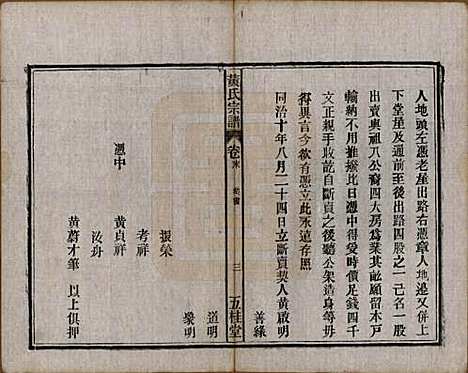 人地頭左憑老產出路右憑章人地邊又併上
下堂屋及通前至後出路四股之一己名一股
出賣與祖八公裔四大房為業其畝願留本戶
輸納不用推撥比日憑中得受時價足錢四千
文正親手收訖自斷賣之後聽公架造兩無
得異言今欲有憑立此永遠存照
同治十年八月二十四日立斷賣契人黃啟明
善緣
黃氏宗譜
卷末
契書
三
五桂堂
道明
彙明
憑中
振榮
考祥
黃貞祥
汝舟
黃蔚才筆
以上俱押